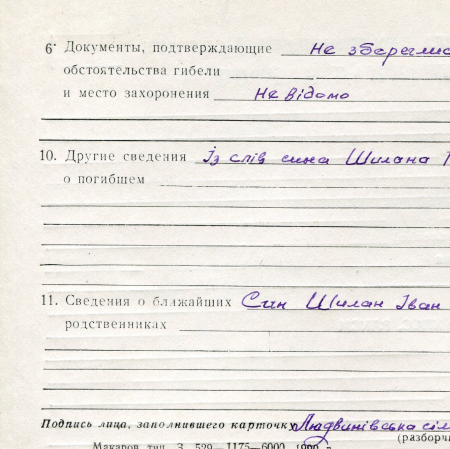 6. Документы, подтверждающие Не збереглис
обстоятельства гибели
и место захоронения Не відомо
10. Другие сведения Із слів сина Шилана
о погибшем
11. Сведения о ближайших Син Шилан Іван
родственниках
Подпись лица, заполнившего карточку Людвинівська сіл
(разборч
Макаров тип. З. 529—1175—6000 1990 г.